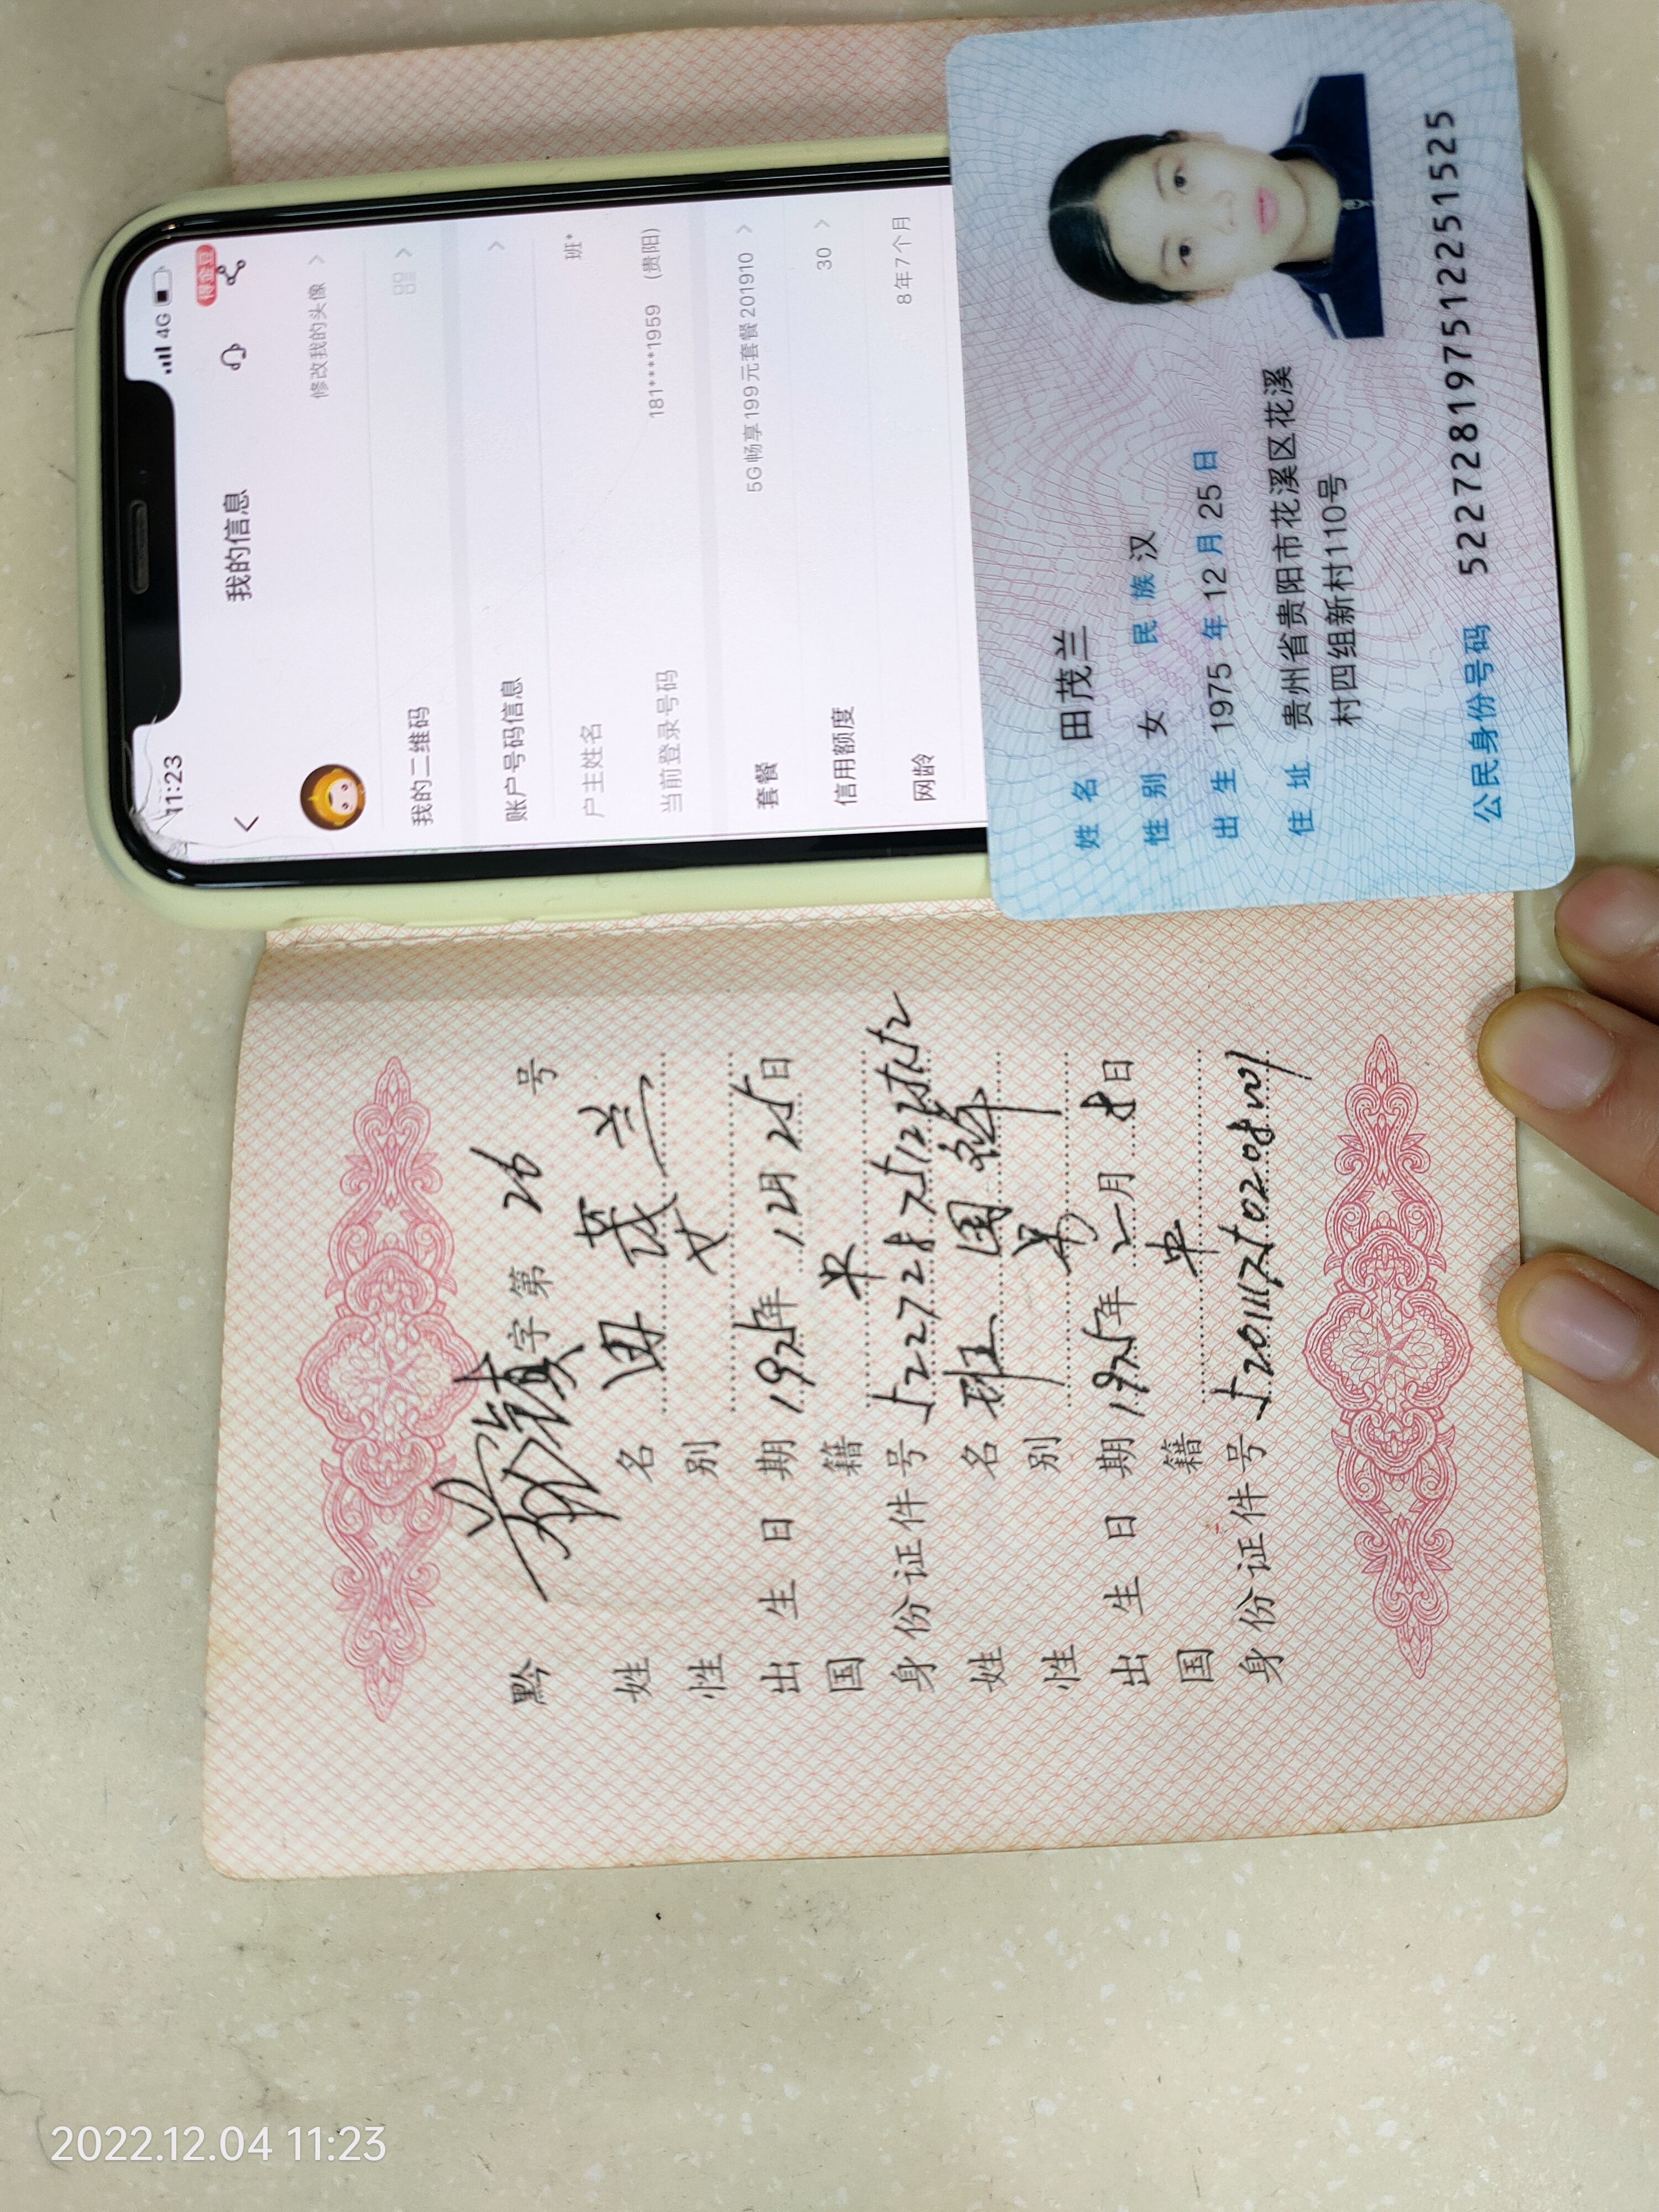 11:23
4G
得金豆
我的信息
修改我的头像
我的二维码
账户号码信息
户主姓名 班*
当前登录号码 181****1959 (贵阳)
套餐 5G畅享199元套餐201910
信用额度 30
网龄 8年7个月
姓名 田茂兰
性别 女 民族 汉
出生 1975 年 12 月 25 日
住址 贵州省贵阳市花溪区花溪
村四组新村110号
公民身份号码 522728197512251525
黔 字第 26 号
姓名 田茂兰
性别 女
出生日期 1975年 12月 25日
国籍 中
身份证件号
姓名 班国祥
性别 男
出生日期 年 月 8日
国籍 中
身份证件号
2022.12.04 11:23